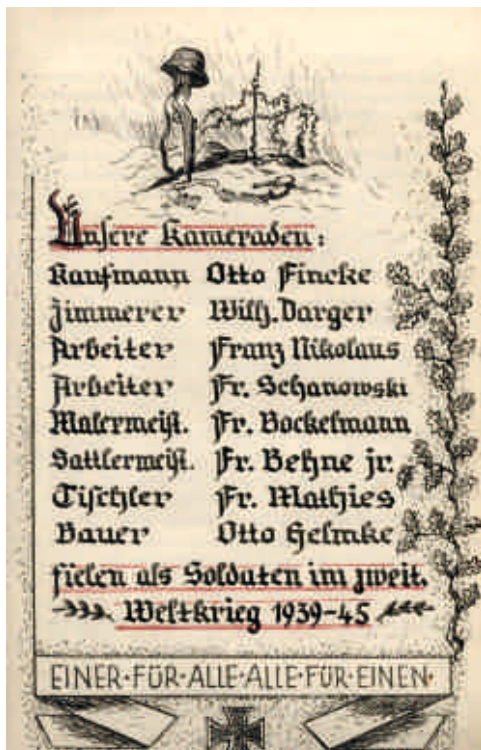 Unsere Kameraden:
Kaufmann Otto Fincke
Zimmerer Wilh. Darger
Arbeiter Franz Nikolaus
Arbeiter Fr. Schanowski
Malermeist. Fr. Bockelmann
Sattlermeist. Fr. Behne jr.
Tischler Fr. Mathies
Bauer Otto Helmke
fielen als Soldaten im zweit.
Weltkrieg 1939-45
EINER·FÜR·ALLE·ALLE·FÜR·EINEN·